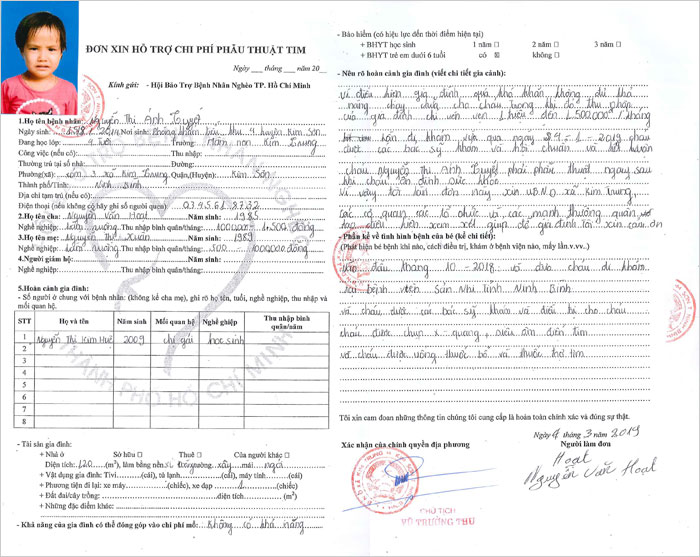 ĐƠN XIN HỖ TRỢ CHI PHÍ PHẪU THUẬT TIM
Ngày ___ tháng ___ năm 20__
Kính gửi: - Hội Bảo Trợ Bệnh Nhân Nghèo TP. Hồ Chí Minh
1.Họ tên bệnh nhân: Nguyễn Thị Ánh Tuyết
Ngày sinh: Nơi sinh: huyện Kim Sơn
Đang học lớp: 4 tuổi Trường: Mầm non Kim Trung
Công việc (nếu có): Thu nhập:
Thường trú tại số nhà: Đường:
Phường(xã): xóm 3 xã Kim Trung Quận,(Huyện): Kim Sơn
Thành phố/Tỉnh: Ninh Bình
Địa chỉ tạm trú (nếu có):
Điện thoại (nếu không có hãy ghi số người quen): 0345618732
2.Họ tên cha: Nguyễn Văn Hoạt Năm sinh: 1985
Nghề nghiệp: Thu nhập bình quân/tháng: 1000000 - 1.500 đồng
3.Họ tên mẹ: Nguyễn Thị Xuân Năm sinh: 1989
Nghề nghiệp: Thu nhập bình quân/tháng: 500 - 1000000 đồng
4.Người giám hộ: Năm sinh:
Nghề nghiệp: Thu nhập bình quân/tháng:
5.Hoàn cảnh gia đình:
- Số người ở chung với bệnh nhân: (không kể cha mẹ), ghi rõ họ tên, tuổi, nghề nghiệp, thu nhập và
mối quan hệ.
STT Họ và tên Năm sinh Mối quan hệ Nghề nghiệp Thu nhập bình quân/năm
1 Nguyễn Thị Kim Huế 2009 chị gái học sinh
2
3
4
5
6
7
8
- Tài sản gia đình:
+ Nhà ở Sở hữu □ Thuê □ Của người khác □
Diện tích: 120 (m²), làm bằng nền: tường: xây mái: ngói
+ Vật dụng gia đình: Tivi (cái), tủ lạnh (cái), máy tính (cái)
+ Phương tiện đi lại: xe máy (chiếc), xe đạp 1 (chiếc)
+ Đất đai/cây trồng: diện tích (m²)
+ Những đặc điểm khác:
- Khả năng của gia đình có thể đóng góp vào chi phí mổ: Không có khả năng
- Bảo hiểm (có hiệu lực đến thời điểm hiện tại)
+ BHYT học sinh 1 năm □ 2 năm □ 3 năm □
+ BHYT trẻ em dưới 6 tuổi có ☑ không □
- Nêu rõ hoàn cảnh gia đình (viết chi tiết gia cảnh):
Vì điều kiện gia đình quá khó khăn không đủ khả
năng chạy chữa cho cháu trong khi đó thu nhập
của gia đình chỉ vẻn vẹn 1 triệu đến 1.500.000 / tháng
đi khám vừa qua ngày 29-1-2019 cháu
được các bác sỹ khám và hội chuẩn và kết luận
cháu Nguyễn Thị Ánh Tuyết phải phẫu thuật ngay sau
khi cháu ổn định sức khỏe
Vì vậy tôi làm đơn này xin UBND xã Kim Trung,
các cơ quan các tổ chức và các mạnh thường quân
tạo điều kiện xem xét giúp đỡ gia đình tôi xin cảm ơn
- Phần kể về tình hình bệnh của bé (kể chi tiết):
(Phát hiện bé bệnh khi nào, cách điều trị, khám ở bệnh viện nào, mấy lần.v.vv..)
vào đầu tháng 10 - 2018 tôi đưa cháu đi khám
tại bệnh viện Sản Nhi Tỉnh Ninh Bình
và cháu được các bác sỹ khám và điều trị cho cháu
cháu được chụp x - quang, siêu âm điện tim
và cháu được uống thuốc bổ và thuốc trợ tim
Tôi xin cam đoan những thông tin chúng tôi cung cấp là hoàn toàn chính xác và đúng sự thật.
Ngày 4 tháng 3 năm 2019
Xác nhận của chính quyền địa phương Người làm đơn
Hoạt
Nguyễn Văn Hoạt
CHỦ TỊCH
VŨ TRƯỜNG THU
THÀNH PHỐ HỒ CHÍ MINH